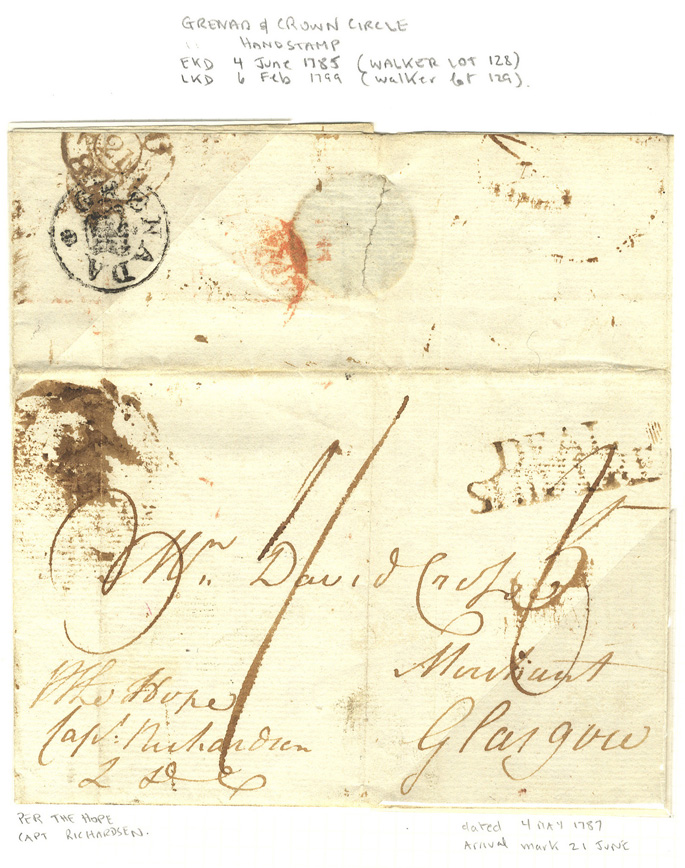 GRENADA CROWN CIRCLE
" HANDSTAMP
EKD 4 June 1785 (WALKER LOT 128)
LKD 6 Feb 1799 (Walker lot 129).
GRENADA
DEAL
SHIP LRE
Mr. David
Merchant
Glasgow
P the Hope
Capt. Richardsen
PER THE HOPE
CAPT RICHARDSEN.
dated 4 MAY 1787
Arrival mark 21 JUNE